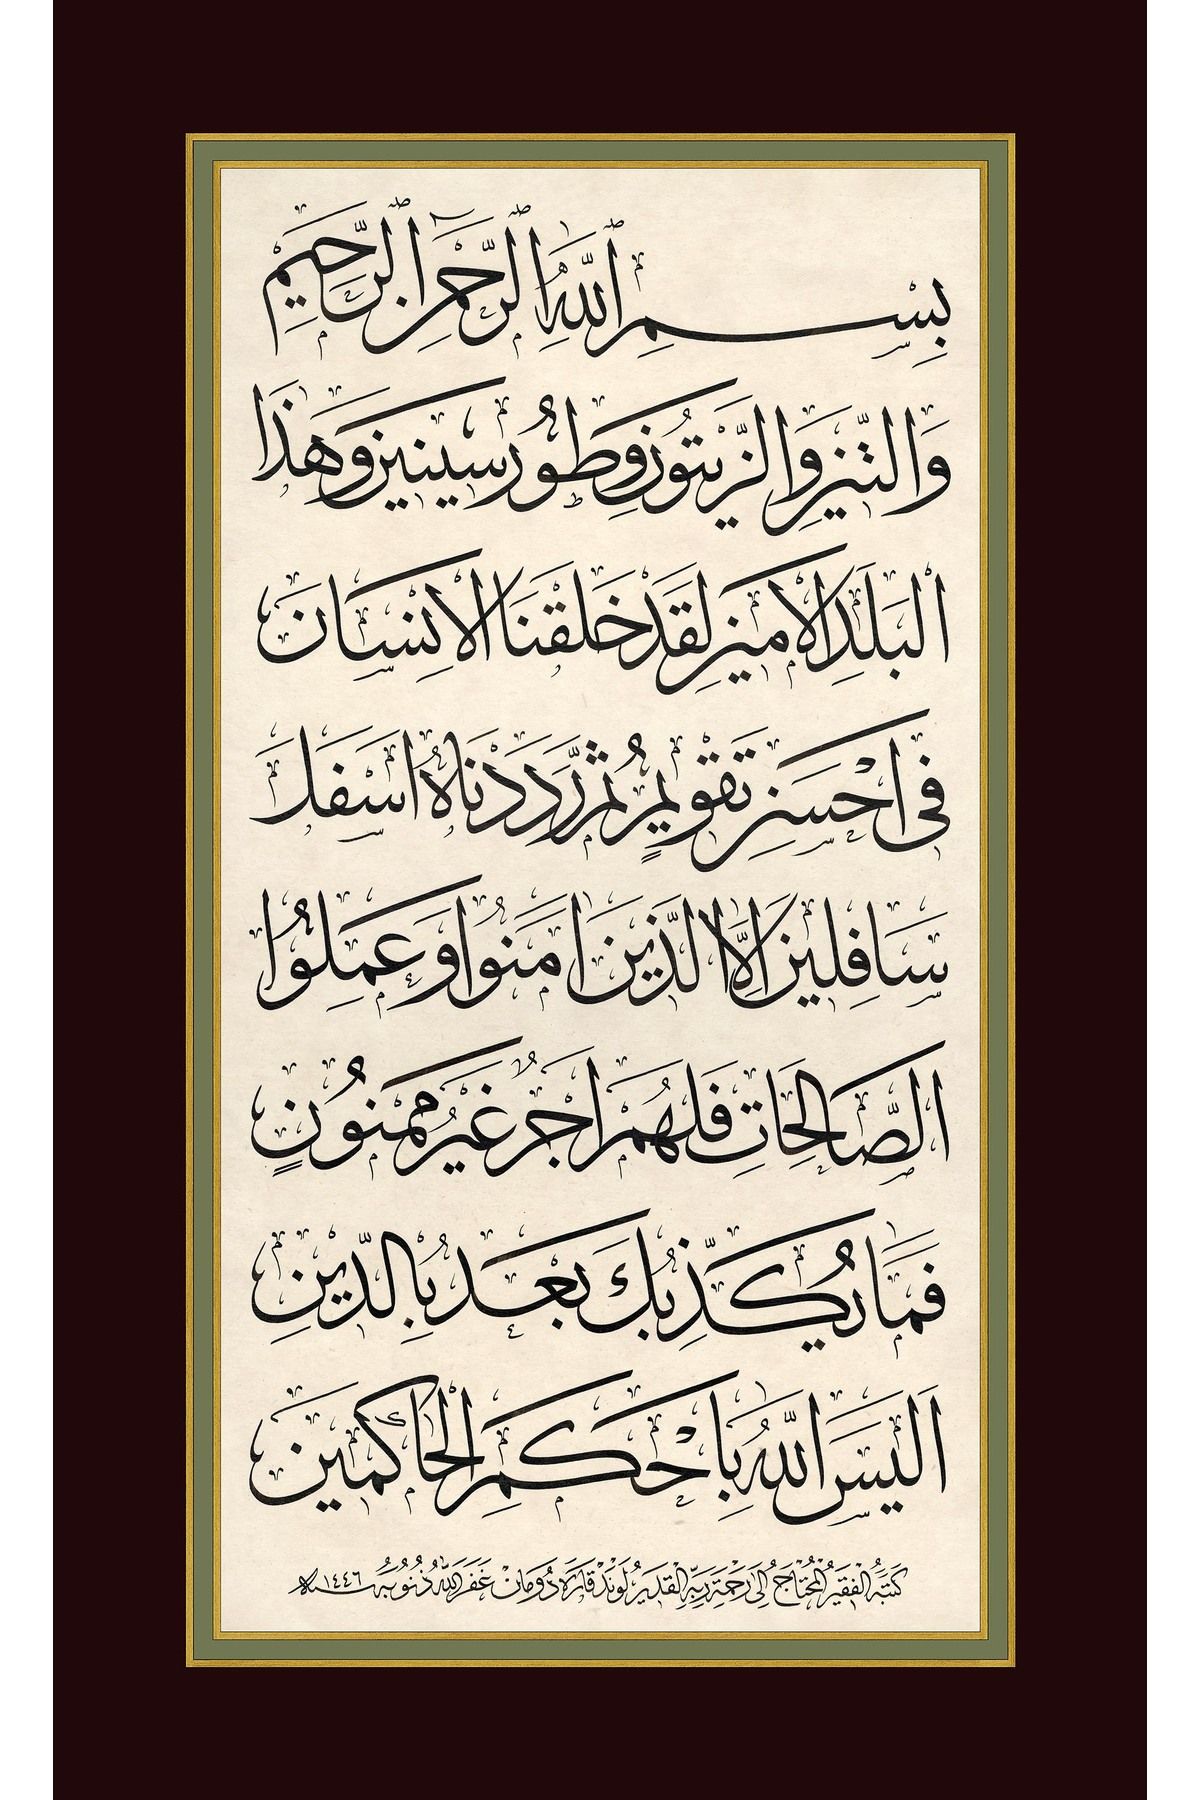 بِسْمِ ٱللَّهِ ٱلرَّحْمٰنِ ٱلرَّحِيمِ
وَالتِّينِ وَالزَّيْتُونِ وَطُورِ سِينِينَ وَهَذَا
الْبَلَدِ الْاَمِينِ لَقَدْ خَلَقْنَا الْاِنْسَانَ
فِى اَحْسَنِ تَقْوِيمٍ ثُمَّ رَدَدْنَاهُ اَسْفَلَ
سَافِلِينَ اِلَّا الَّذِينَ اٰمَنُوا وَعَمِلُوا
الصَّالِحَاتِ فَلَهُمْ اَجْرٌ غَيْرُ مَمْنُونٍ
فَمَا يُكَذِّبُكَ بَعْدُ بِالدِّينِ
اَلَيْسَ اللّٰهُ بِاَحْكَمِ الْحَاكِمِينَ
كتبه الفقير المحتاج الى رحمة ربه القدير لوند قاره دومان غفر الله ذنوبه سنة ١٤٤٦